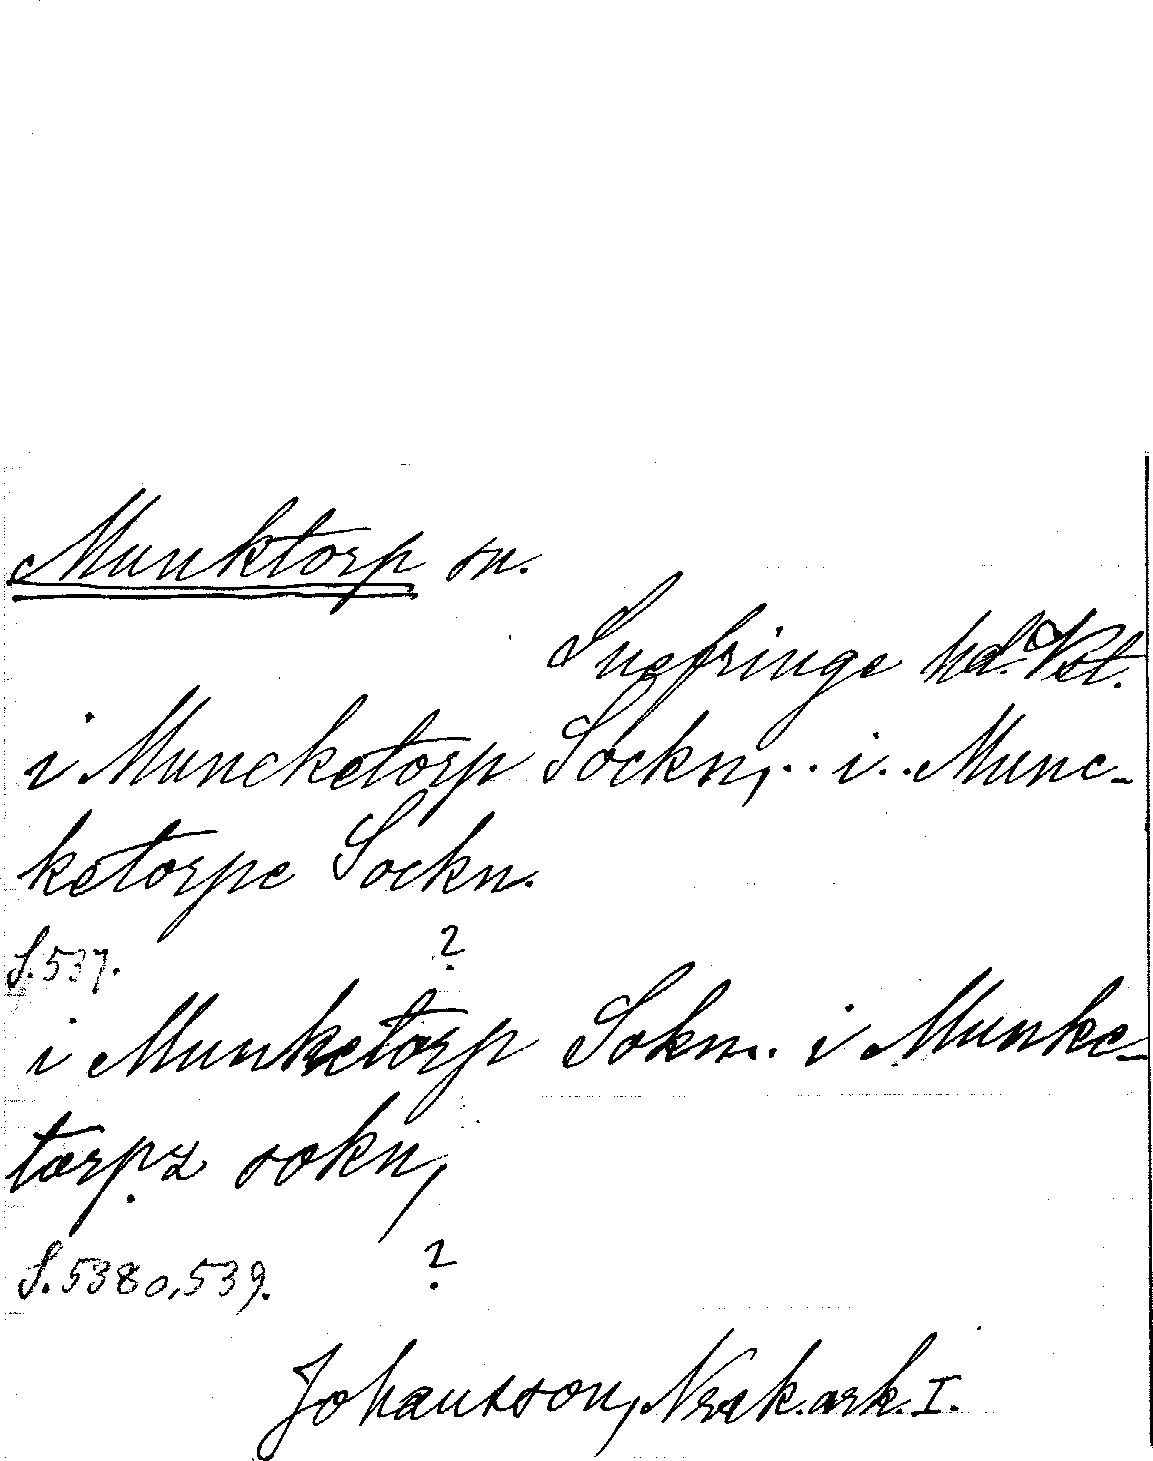 Munktorp sn.
Snefringe hd. Vst.
i Muncketorp Sockn, .. i .. Munc-
ketorpe Sockn.
S. 537. ?
i Munketorp Sokn .. i Munke-
torpz sokn,
S. 538 o, 539. ?
Johansson, Nrak. ark. I.